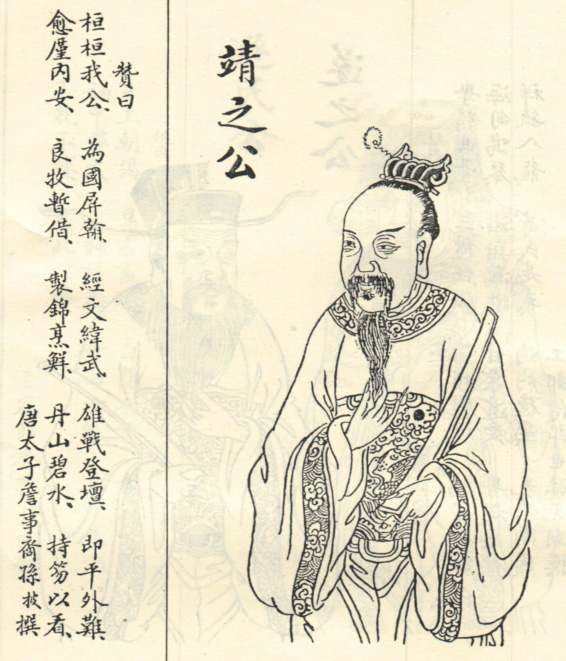 靖之公
贊曰
桓桓我公、為國屏翰、經文緯武、雄戰登壇、即平外難、
愈厪內安、良牧暫借、製錦烹鮮、丹山碧水、持笏以看、
唐太子詹事裔孫 撰